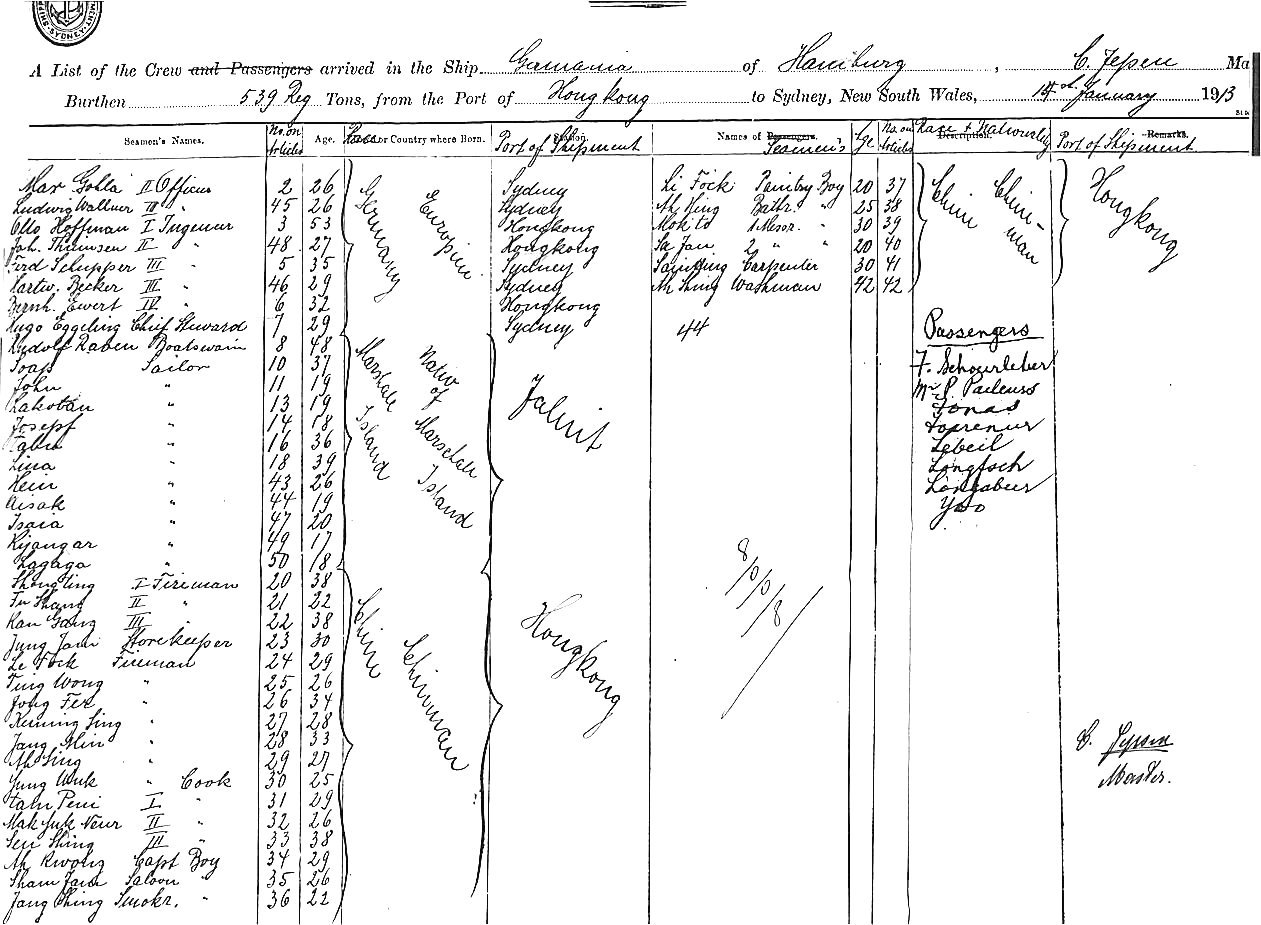 MENT · SYDNEY · SHIP
A List of the Crew and Passengers arrived in the Ship Germania of Hamburg, C. Jepsen Ma
Burthen 539 Reg Tons, from the Port of Hongkong to Sydney, New South Wales, 14th January 1913
Seamen's Names. No. on Articles Age. Race or Country where Born. Port of Shipment Station. Names of Passengers. Seamen's Age No. on Articles Race & Nationality Description. Port of Shipment Remarks.
Max Golla II Officer 2 26 Sydney Li Fock Pantry Boy 20 37
Ludwig Wallner III " 45 26 Sydney Ah King Bathr. " 25 38
Otto Hoffman I Ingenur 3 53 Hongkong Mok To 1 Messr. " 30 39
Joh. Thomsen II " 48 27 Hongkong Sa Jan 2 " " 20 40
Ferd Schipper III " 5 35 Sydney Carpenter 30 41
Hartw. Becker III " 46 29 Sydney Ah Shing Washman 42 42
Bernh. Ewert IV " 6 32 Hongkong
Hugo Eggeling Chief Steward 7 29 Sydney 44
Germany Europien
Chin Chinman
Hongkong
Rudolf Raben Boatswain 8 48
Soap Sailor 10 37
John " 11 19
Lakotan " 13 19
Josepf " 14 18
Tabu " 16 36
Lina " 18 39
Hein " 43 26
Aisak " 44 19
Isaia " 47 20
Kijangar " 49 17
Lagaga " 50 18
Marshall Island Nativ of Marschall Island
Jaluit
Passengers
F. Schourleber
Mr P. Padeuss
Jonas
Loprenur
Lebeil
Longfsch
Langabeer
Yao
Shongling I Fireman 20 38
Fu Shang II " 21 22
Kan Gang III " 22 38
Jung Jam Storekeeper 23 30
Le Fock Fireman 24 29
Ting Wong " 25 26
Jong Fer " 26 34
Keming Sing " 27 28
Jang Min " 28 33
Ah Sing " 29 27
Jung Wuk " Cook 30 25
Tam Peni I " 31 29
Mak Yuk Neur II " 32 26
Sen Shing III " 33 38
Ah Kwong Capt Boy 34 29
Sham Jam Saloon " 35 26
Jang Shing Smokr. " 36 22
Chine Chinman
Hongkong
8/0/0/8
C. Jepsen
Master.